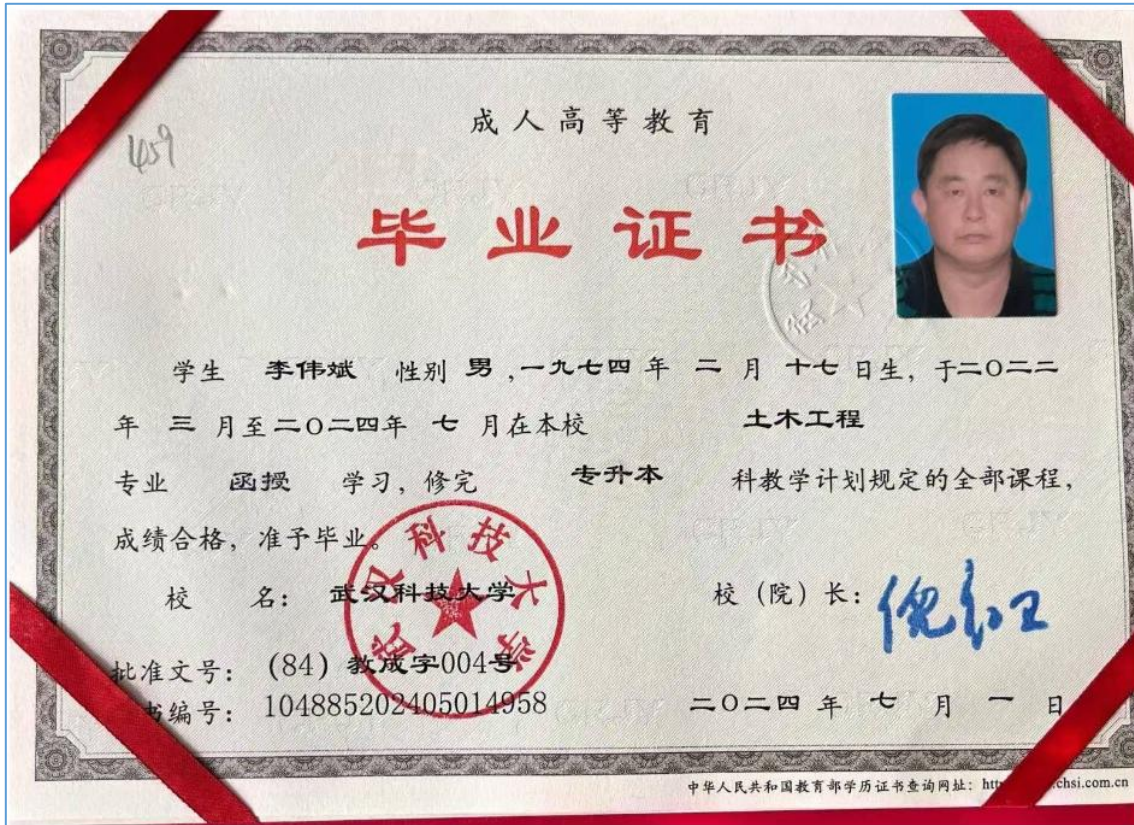 成人高等教育
459
毕业证书
学生 李伟斌 性别 男 ,一九七四 年 二 月 十七 日生, 于二〇二二
年 三 月至二〇二四年 七 月在本校 土木工程
专业 函授 学习, 修完 专升本 科教学计划规定的全部课程,
成绩合格, 准予毕业。
武汉科技大学
校 名: 武汉科技大学 校（院）长: 倪红卫
批准文号: (84) 教成字004号
书编号: 104885202405014958 二〇二四 年 七 月 一 日
中华人民共和国教育部学历证书查询网址: htt chsi.com.cn